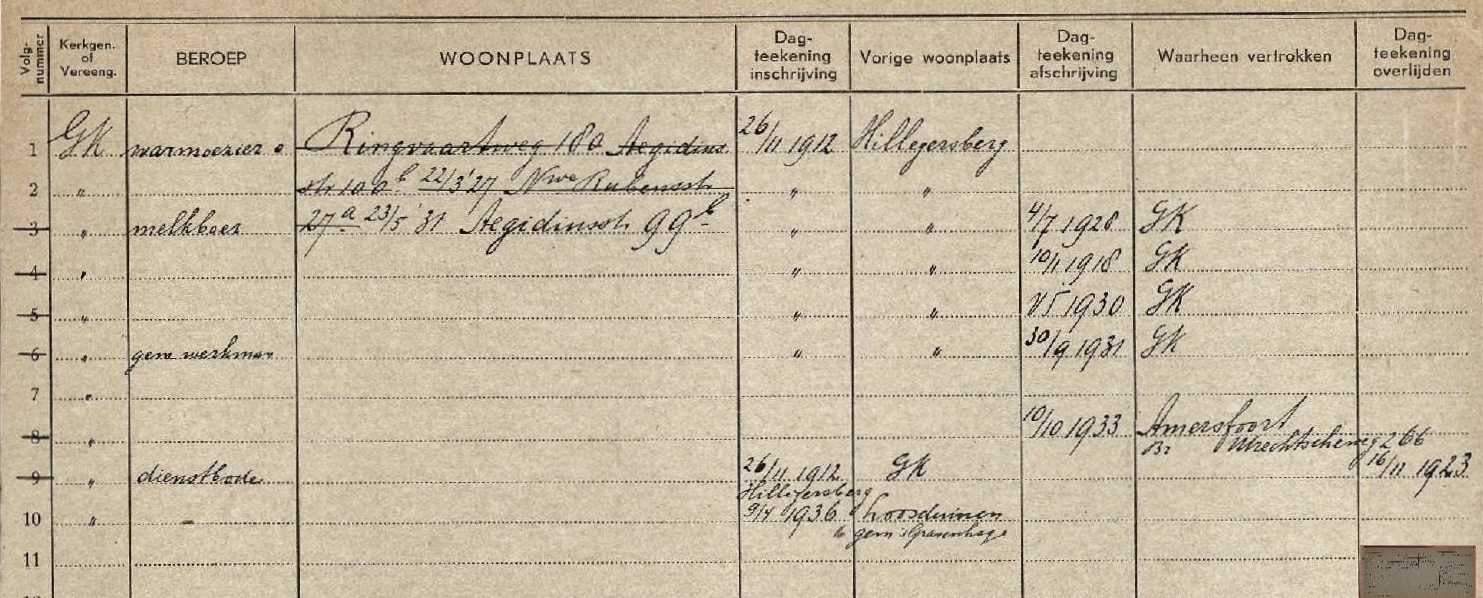 Volg-nummer Kerkgen. of Vereeng. BEROEP WOONPLAATS Dag-teekening inschrijving Vorige woonplaats Dag-teekening afschrijving Waarheen vertrokken Dag-teekening overlijden
1 GK warmoezier Ringvaartweg 180 Aegidius 26/11 1912 Hillegersberg
2 " str 100b 22/3 '27 Nwe Rubensstr " "
3 " melkboer 27a 23/5 '31 Aegidiusstr 99b " " 4/7 1928 GK
4 " " " 10/11 1918 GK
5 " " " 1930 GK
6 " gem werkman " " 30/9 1931 GK
7 "
8 " 10/10 1933 Amersfoort
Utrechtscheweg 266
9 " dienstbode 26/11 1912 GK 16/11 1923
Hillegersberg
10 " 1936 Loosduinen
gem 's Gravenhage
11